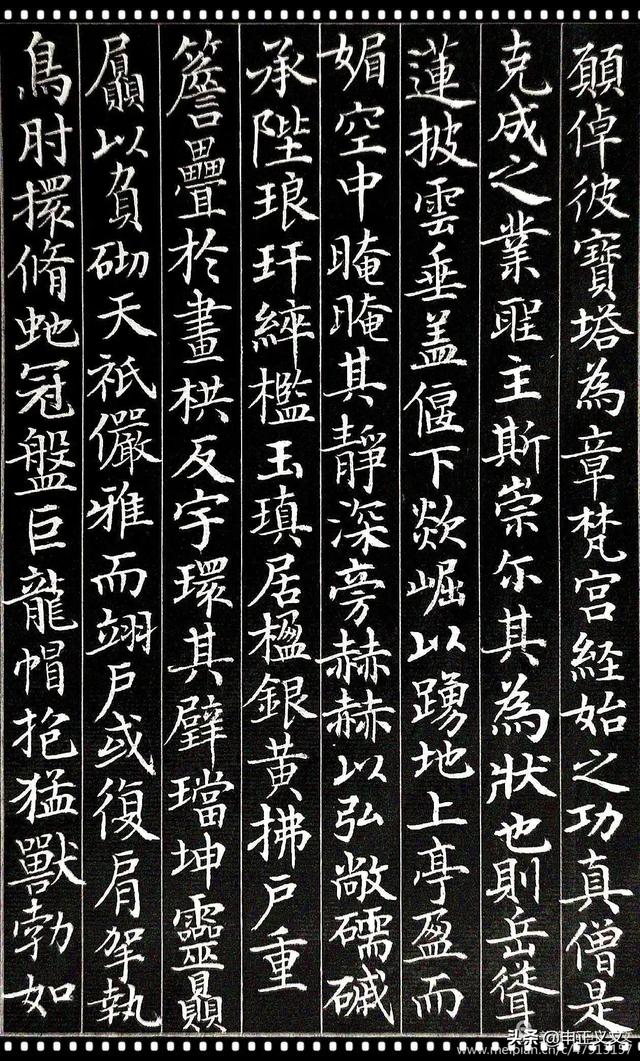 願倬彼寶塔為章梵宮経始之功真僧是
克成之業聖主斯崇尔其為狀也則岳聳
蓮披雲垂盖偃下欻崛以踴地上亭盈而
媚空中晻晻其靜深旁赫赫以弘敞礝磩
承陛琅玕綷檻玉瑱居楹銀黃拂戶重
簷疊於畫栱反宇環其璧璫坤靈贔
屭以負砌天祇儼雅而翊戶或復肩挐執
鳥肘擐脩虵冠盤巨龍帽抱猛獸勃如